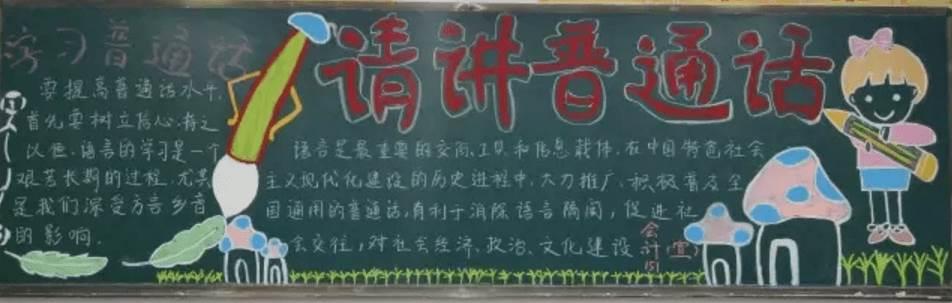 学习普通话
要提高普通话水平,
首先要树立信心,持之
以恒,语言的学习是一个
艰苦长期的过程,尤其
是我们深受方言乡音
的影响.
请讲普通话
语言是最重要的交流工具和信息载体.在中国特色社会
主义现代化建设的历史进程中,大力推广、积极普及全
国通用的普通话,有利于消除语言隔阂,促进社
会交往,对社会经济、政治、文化建设
会计(宣)
151